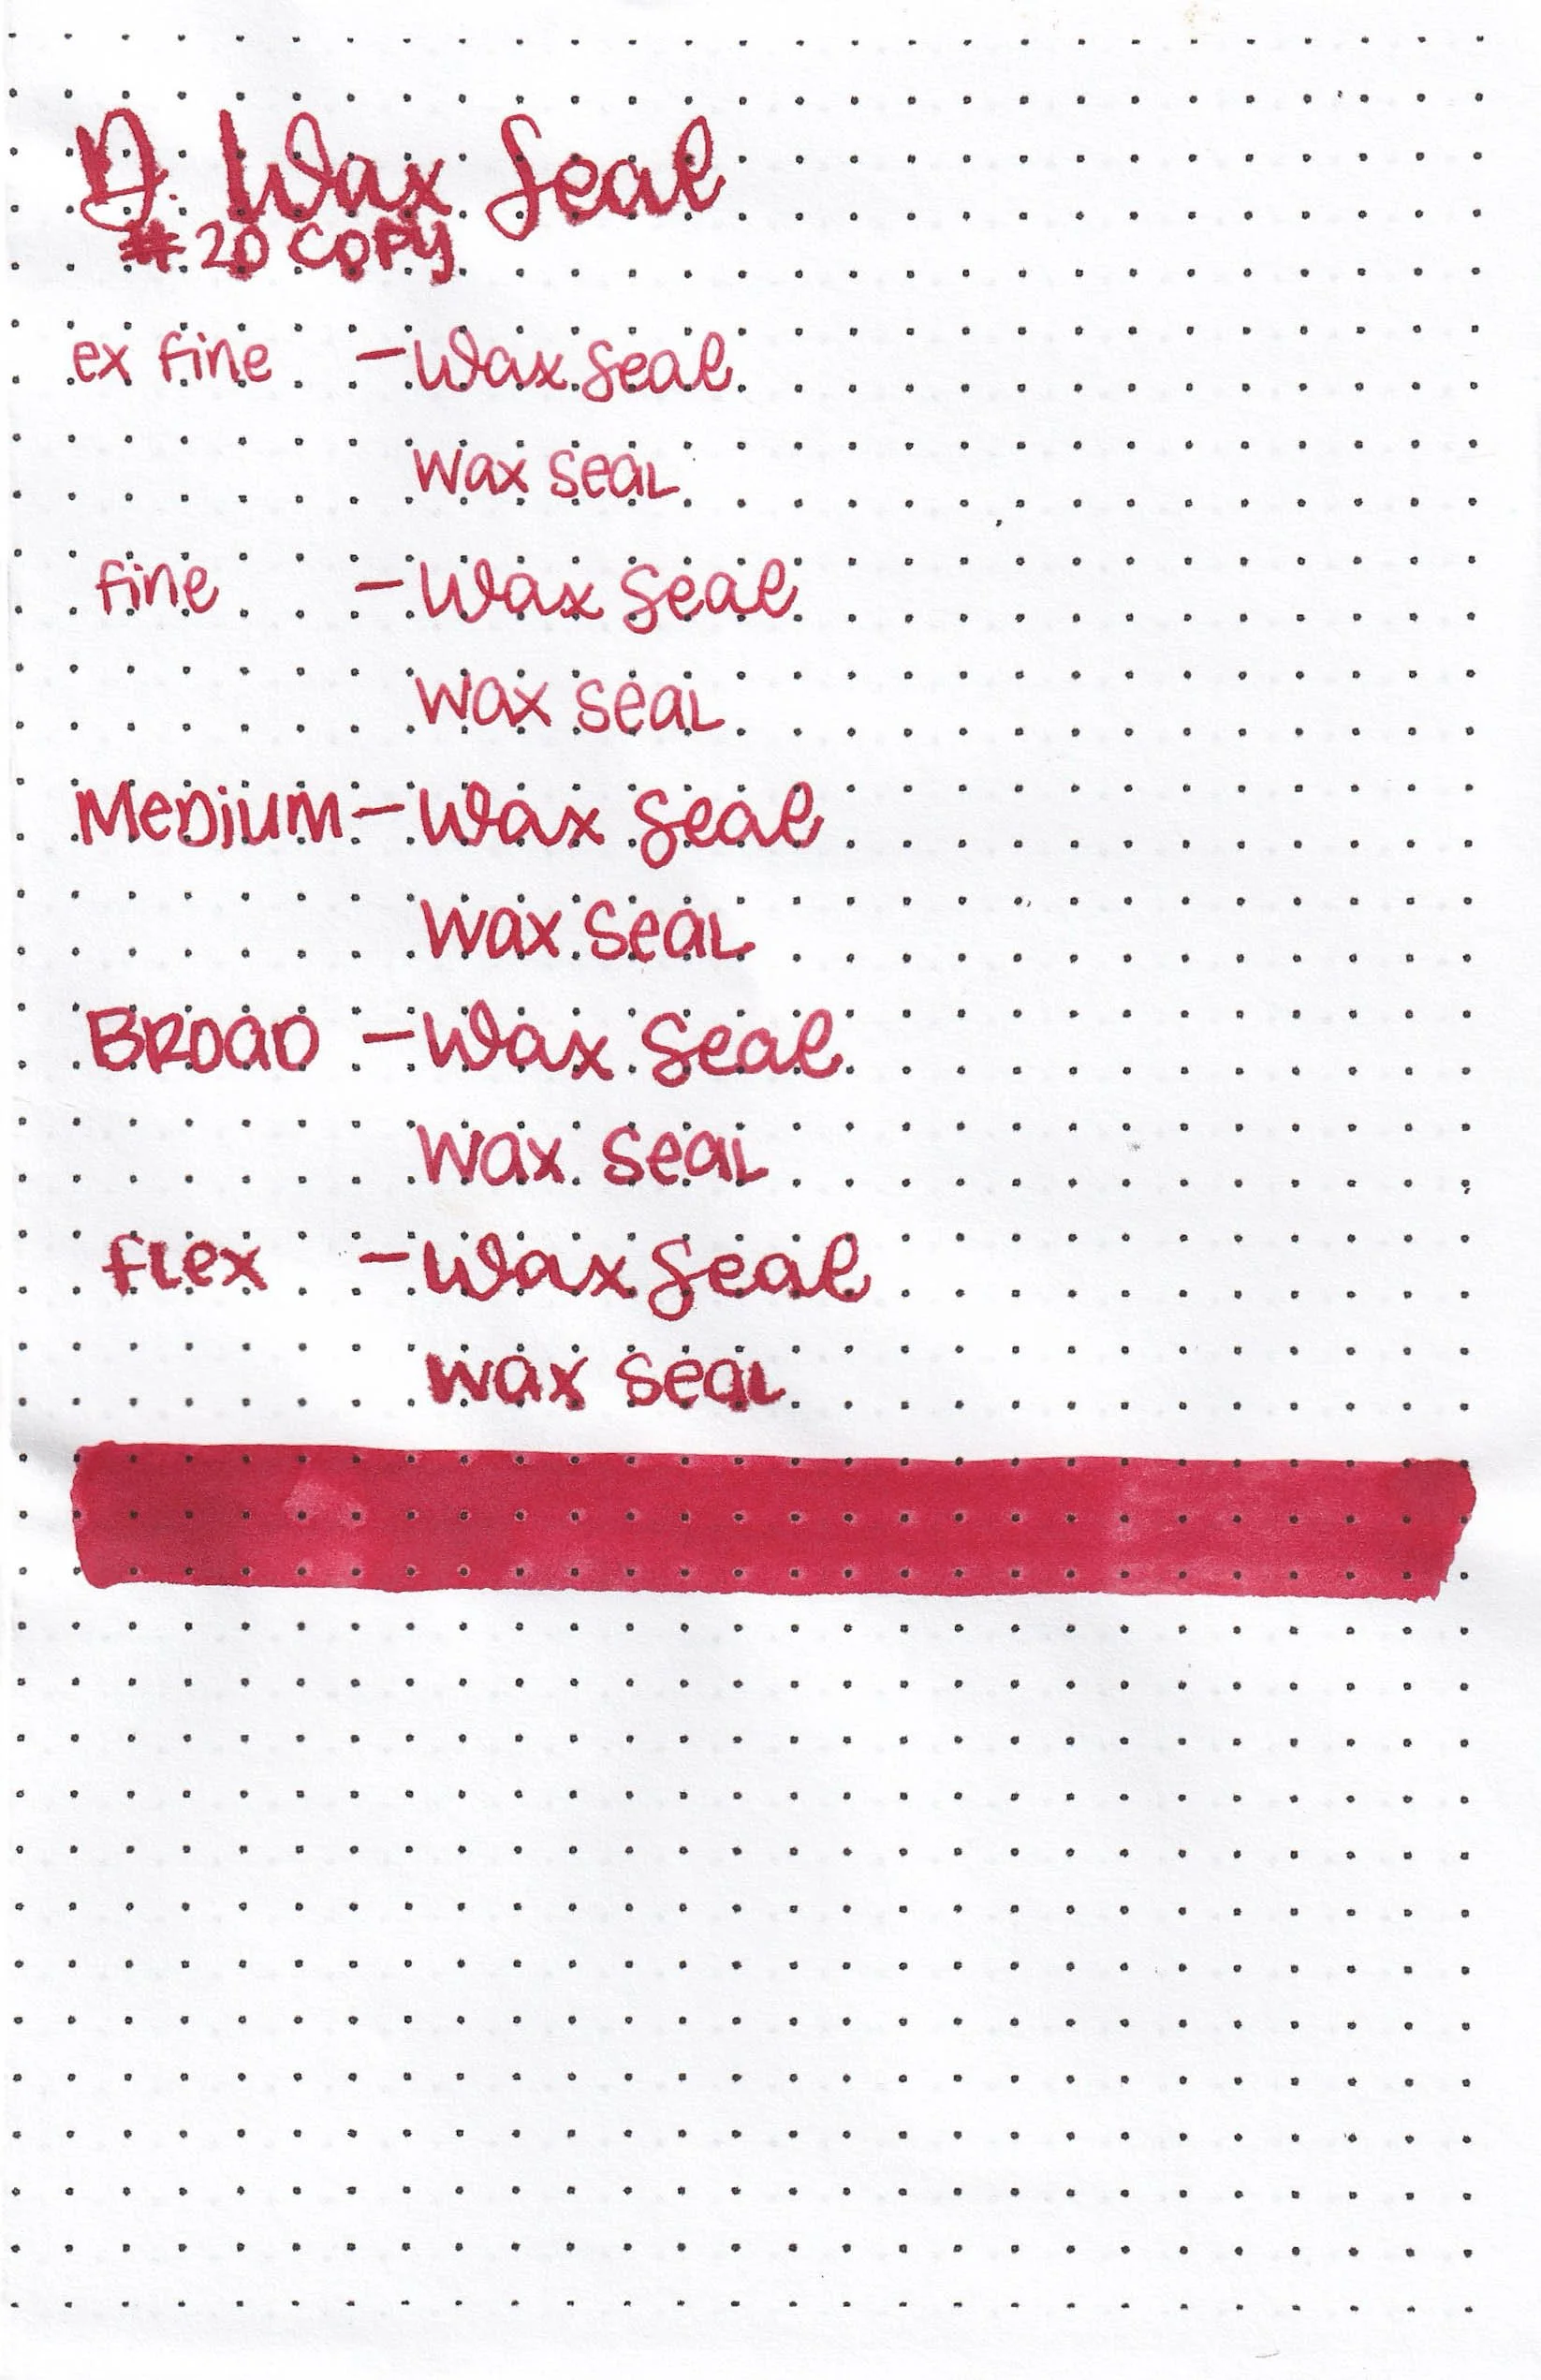 D. Wax Seal
#20 COPY
ex fine - Wax Seal
Wax Seal
fine - Wax Seal
Wax Seal
Medium - Wax Seal
Wax Seal
Broad - Wax Seal
Wax Seal
flex - Wax Seal
Wax Seal